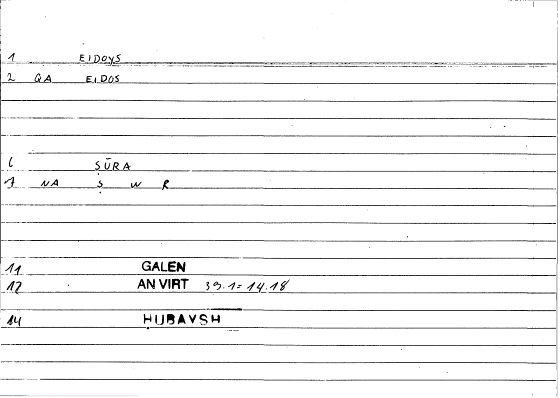 1 EIDOYS
2 QA EIDOS
6 ṢŪRA
7 NA Ṣ W R
11 GALEN
12 AN VIRT 39.1 = 14.18
14 ḤUBAYSH